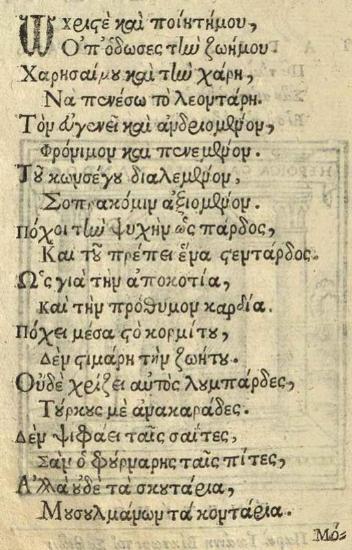 Ὦ χριςὲ καὶ ποίητήμου,
Ο'π' ὄδωσες τὴν ζωήμου
Χαρησαίμυ καὶ τὴν χάρη,
Νὰ πενέσω τὸ λεοντάρη.
Τὸν ἀγενεῖ καὶ ἀνδριομένον,
Φρόνιμον καὶ πενεμένον.
Τοῦ κωνσέγυ διαλεμένον,
Σοπρακόμιν ἀξιομένον.
Πόχοι τὴν ψυχὴν ὡς πάρδος,
Καὶ τοῦ πρέπει ἕνα ςεντάρδος.
Ὡς γιὰ τὴν ἀποκοτία,
Καὶ τὴν πρόθυμον καρδία.
Πόχει μέσα ςὸ κορμίτυ,
Δὲν ςιμάρη τὴν ζωήτυ.
Οὐδὲ χρίζει αὐτὸς λυμπάρδες,
Τύρκυς μὲ ἀνακαράδες.
Δὲν ψιφάει ταῖς σαΐτες,
Σὰν ὁ φύρναρης ταῖς πίτες,
Α'λλὰ ὐδὲ τὰ σκυτάρια,
Μυσυλμάνων τὰ κοντάρια.
Μό-